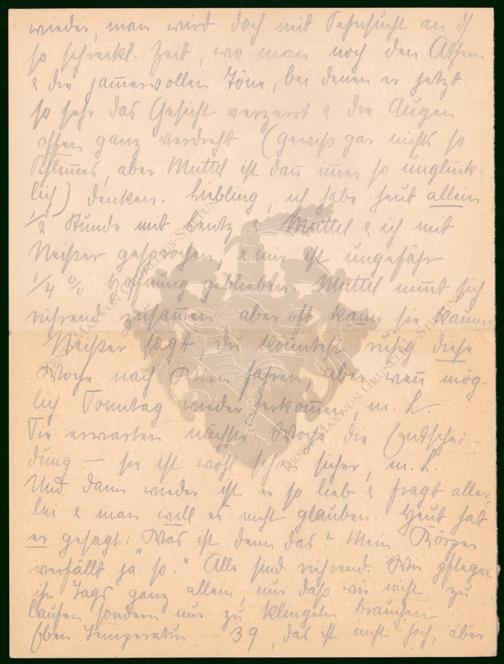 wieder, man wird doch mit Sehnsucht an d
so schreckl. Zeit, wo man noch den Atem
& die jam̅ervollen Töne, bei denen er jetzt
so sehr das Gesicht verzerrt & die Augen
offen ganz verdreht (gewiß gar nichts so
Schlim̅es, aber Muttel ist dan̅ im̅er so unglück-
lich) denken. Liebling, ich habe heut allein
1/2 Stunde mit Lentz & Muttel & ich mit
Neißer gesprochen & nur ist ungefähr
1/4 % Hoffnung geblieben. Muttel nim̅t sich
rührend zusam̅en aber oft kann sie kaum.
Neißer sagt, du könntest ruhig diese
Woche nach fahren aber wen̅ mög-
lich Sonntag wieder herkom̅en, m. L.
Sie erwarten nächste Woche die Entschei-
dung – sie ist wohl schon sicher, m. L.
Und dann wieder ist er so lieb & fragt aller-
lei & man will es nicht glauben. Heut hat
er gesagt: "Was ist denn das? Mein Körper
verfällt ja so." Alle sind rührend. Wir pflegen
ihn Tags ganz allein, nur daß wir nicht zu
laufen sondern nur zu klingeln brauchen
Eben Temperatur 39, das ist nicht hoch, aber